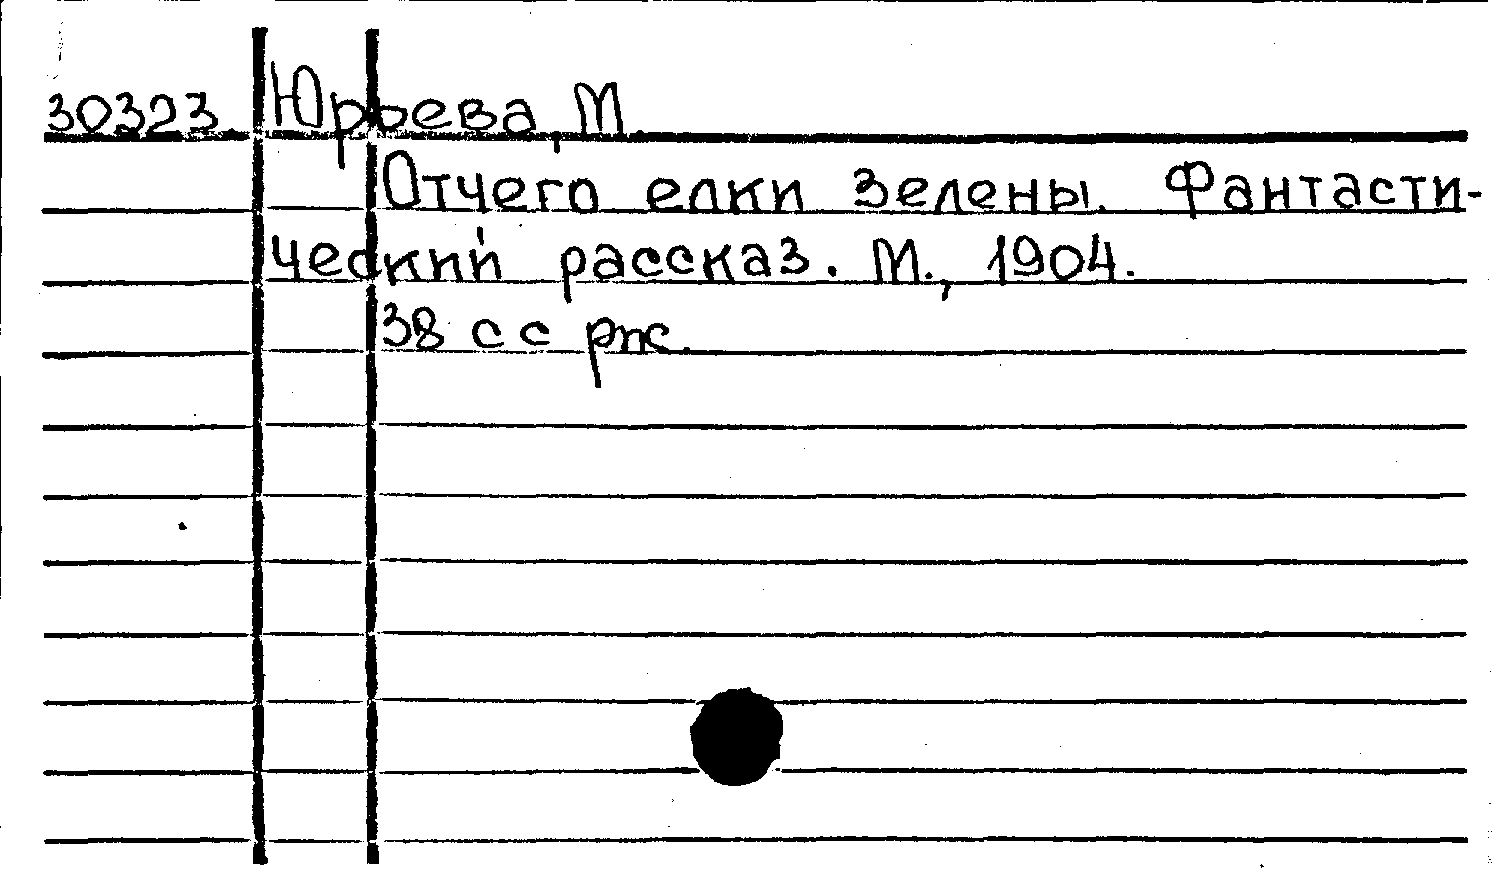 30323 Юрьева, М
Отчего елки зелены. Фантасти-
ческий рассказ. М., 1904.
38 с с рис.